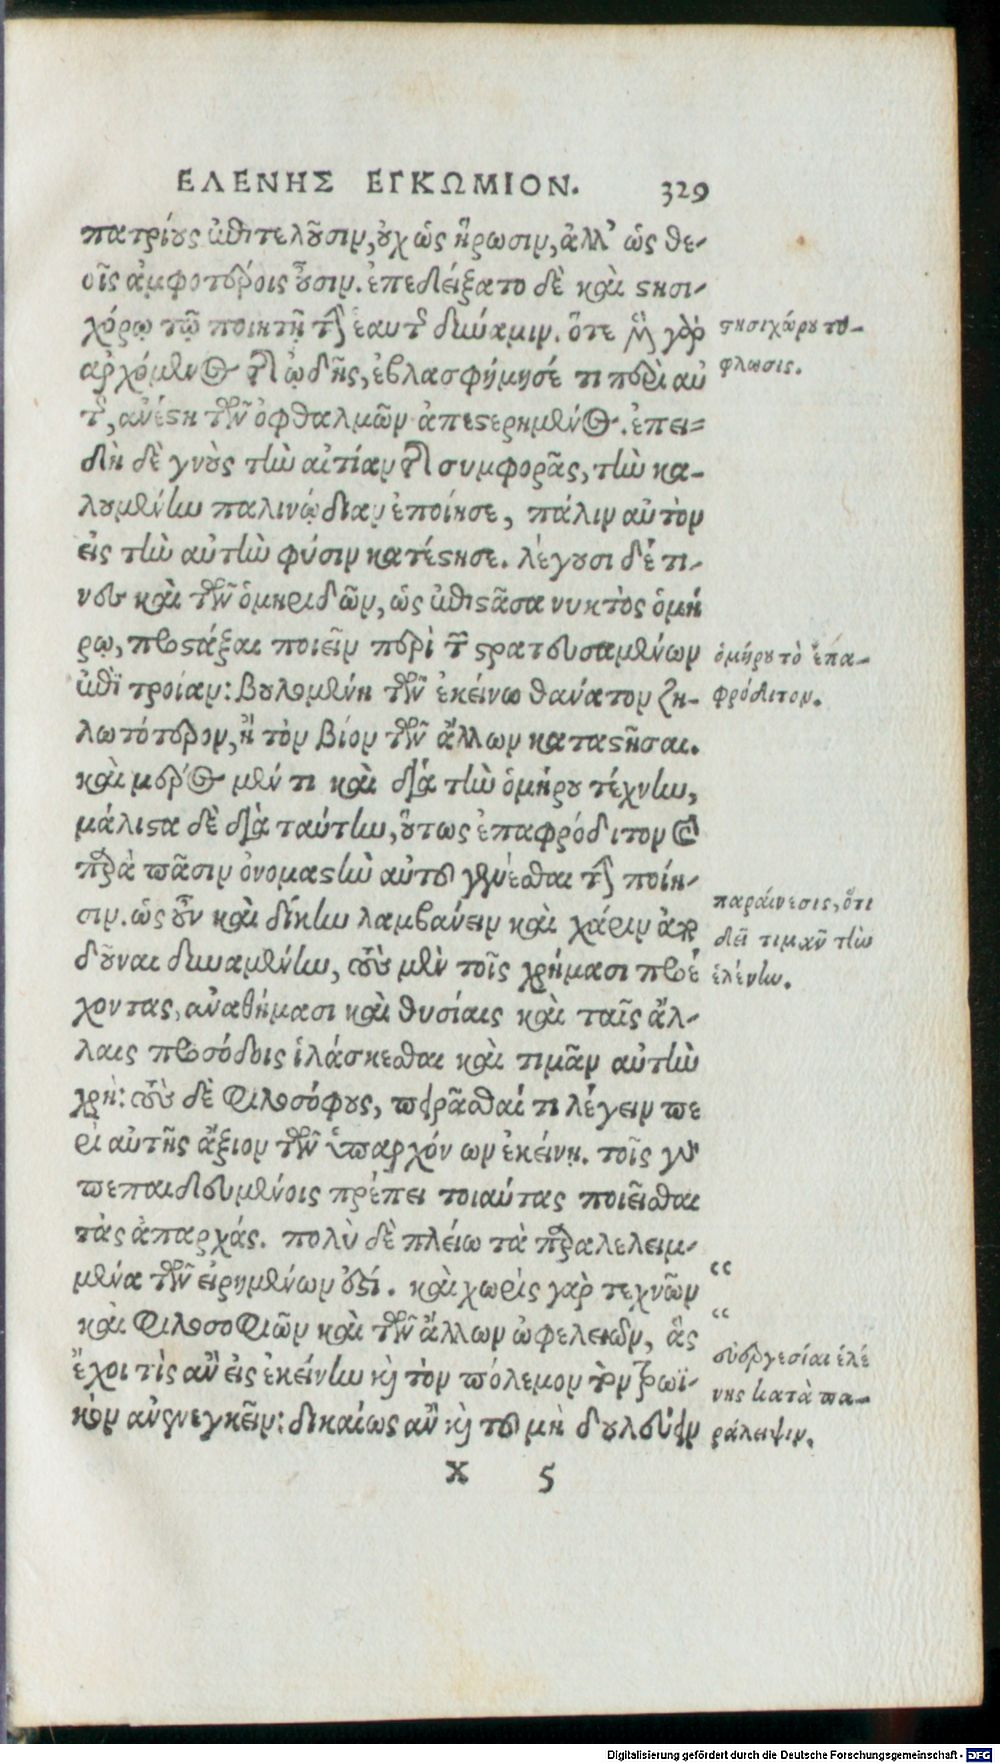 ΕΛΕΝΗΣ ΕΓΚΩΜΙΟΝ. 329
πατρίους ἐπιτελοῦσιν, οὐχ ὡς ἥρωσιν, ἀλλ' ὡς θε-
οῖς ἀμφοτέροις οὖσιν. ἐπεδείξατο δὲ καὶ στησι-
χόρῳ τῷ ποιητῇ τὴν ἑαυτῆς δύναμιν. ὅτε μὲν γὰρ
ἀρχόμενος τῆς ᾠδῆς, ἐβλασφήμησέ τι περὶ αὐ
τῆς, ἀνέστη τῶν ὀφθαλμῶν ἀπεστερημένος. ἐπει-
δὴ δὲ γνοὺς τὴν αἰτίαν τῆς συμφορᾶς, τὴν κα-
λουμένην παλινῳδίαν ἐποίησε, πάλιν αὐτὸν
εἰς τὴν αὐτὴν φύσιν κατέστησε. λέγουσι δέ τι-
νες καὶ τῶν ὁμηριδῶν, ὡς ἐπιστᾶσα νυκτὸς ὁμή
ρῳ, προστάξαι ποιεῖν περὶ τῶν στρατευσαμένων
ἐπὶ τροίαν: βουλομένη τῶν ἐκείνων θάνατον ζη-
λωτότερον, ἢ τὸν βίον τῶν ἄλλων καταστῆσαι.
καὶ μέρος μέν τι καὶ διὰ τὴν ὁμήρου τέχνην,
μάλιστα δὲ διὰ ταύτην, οὕτως ἐπαφρόδιτον καὶ
παρὰ πᾶσιν ὀνομαστὴν αὐτοῦ γενέσθαι τὴν ποίη-
σιν. ὡς οὖν καὶ δίκην λαμβάνειν καὶ χάριν ἀπο
δοῦναι δυναμένην, τοὺς μὲν τοῖς χρήμασι προέ
χοντας, ἀναθήμασι καὶ θυσίαις καὶ ταῖς ἄλ-
λαις προσόδοις ἱλάσκεσθαι καὶ τιμᾶν αὐτὴν
χρή: τοὺς δὲ φιλοσόφους, πειρᾶσθαί τι λέγειν πε
ρὶ αὐτῆς ἄξιον τῶν ὑπαρχόν ων ἐκείνῃ. τοῖς γὰρ
πεπαιδευμένοις πρέπει τοιαύτας ποιεῖσθαι
τὰς ἀπαρχάς. πολὺ δὲ πλείω τὰ παραλελειμ-
μένα τῶν εἰρημένων ἐστί. καὶ χωρὶς γὰρ τεχνῶν
καὶ φιλοσοφιῶν καὶ τῶν ἄλλων ὠφελειῶν, ἃς
ἔχοι τὶς ἂν εἰς ἐκείνην καὶ τὸν πόλεμον τὸν τρωϊ-
κὸν ἀνενεγκεῖν: δικαίως ἂν καὶ τοῦ μὴ δουλεύειν
X 5
στησιχώρου τύ-
φλωσις.
ὁμήρου τὸ ἐπα-
φρόδιτον.
παραίνεσις, ὅτι
δεῖ τιμᾶν τὴν
ἑλένην.
“
“
εὐεργεσίαι ἑλέ
νης κατὰ πα-
ράλειψιν.
Digitalisierung gefördert durch die Deutsche Forschungsgemeinschaft - DFG